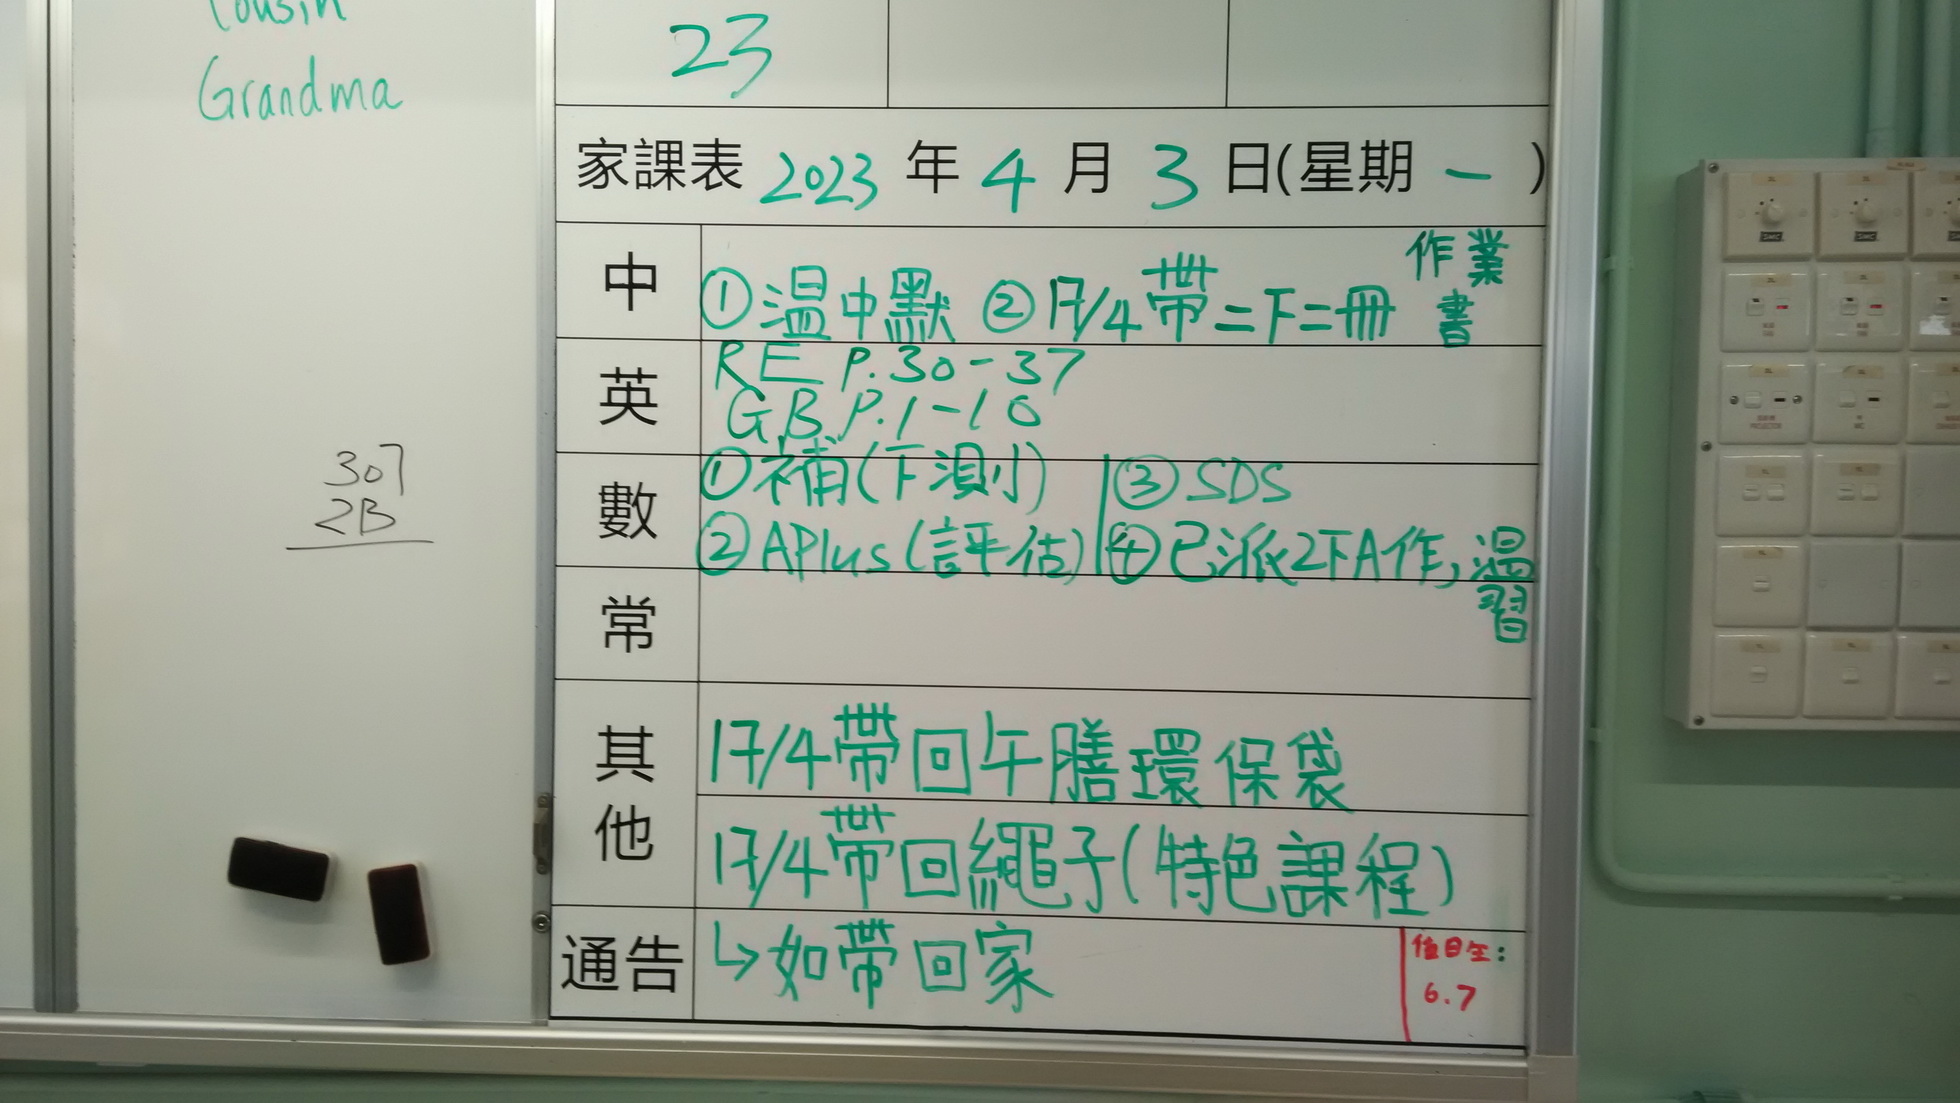 Cousin
Grandma
307
2B
23
家課表 2023 年 4 月 3 日(星期 一 )
中
①温中默 ②17/4帶二下二冊 作業書
英
RE P.30-37
GB P.1-10
數
①補(下測小) ③SDS
②APlus(評估) ④已派2下A作,溫習
常
其他
17/4帶回午膳環保袋
17/4帶回繩子(特色課程)
通告
↳如帶回家
值日生:
6.7